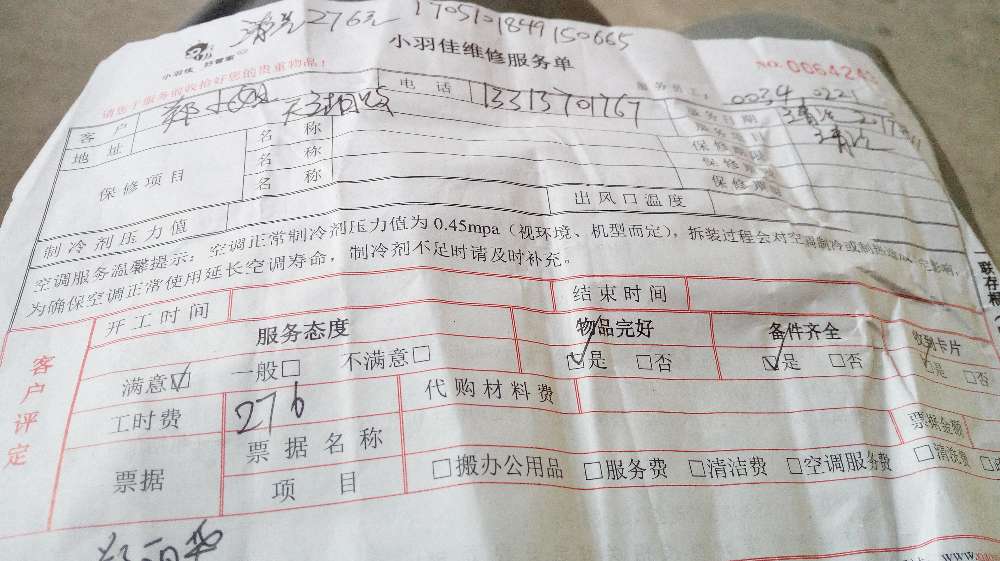 276元 170510184915066​5
小羽佳维修服务单
小羽佳 好管家
NO: 0064245
请您于服务前收拾好您的贵重物品!
客户 郑 电话 13313701767 服务员工: 0034 0221
地址 名称 服务日期 2017
保修项目 名称 保修期限
名称 保修期限
制冷剂压力值 出风口温度
空调服务温馨提示:空调正常制冷剂压力值为0.45mpa(视环境、机型而定),拆装过程会对空调制冷或制热造成一定影响,
为确保空调正常使用延长空调寿命,制冷剂不足时请及时补充。
开工时间 结束时间
客户评定
服务态度 物品完好 备件齐全 收到卡片
满意☑ 一般□ 不满意□ ☑是 □否 ☑是 □否 ☑是 □否
工时费 276 代购材料费
票据 票据名称 票据金额
项目 □搬办公用品 □服务费 □清洁费 □空调服务费 □清洗费
联存根
www.